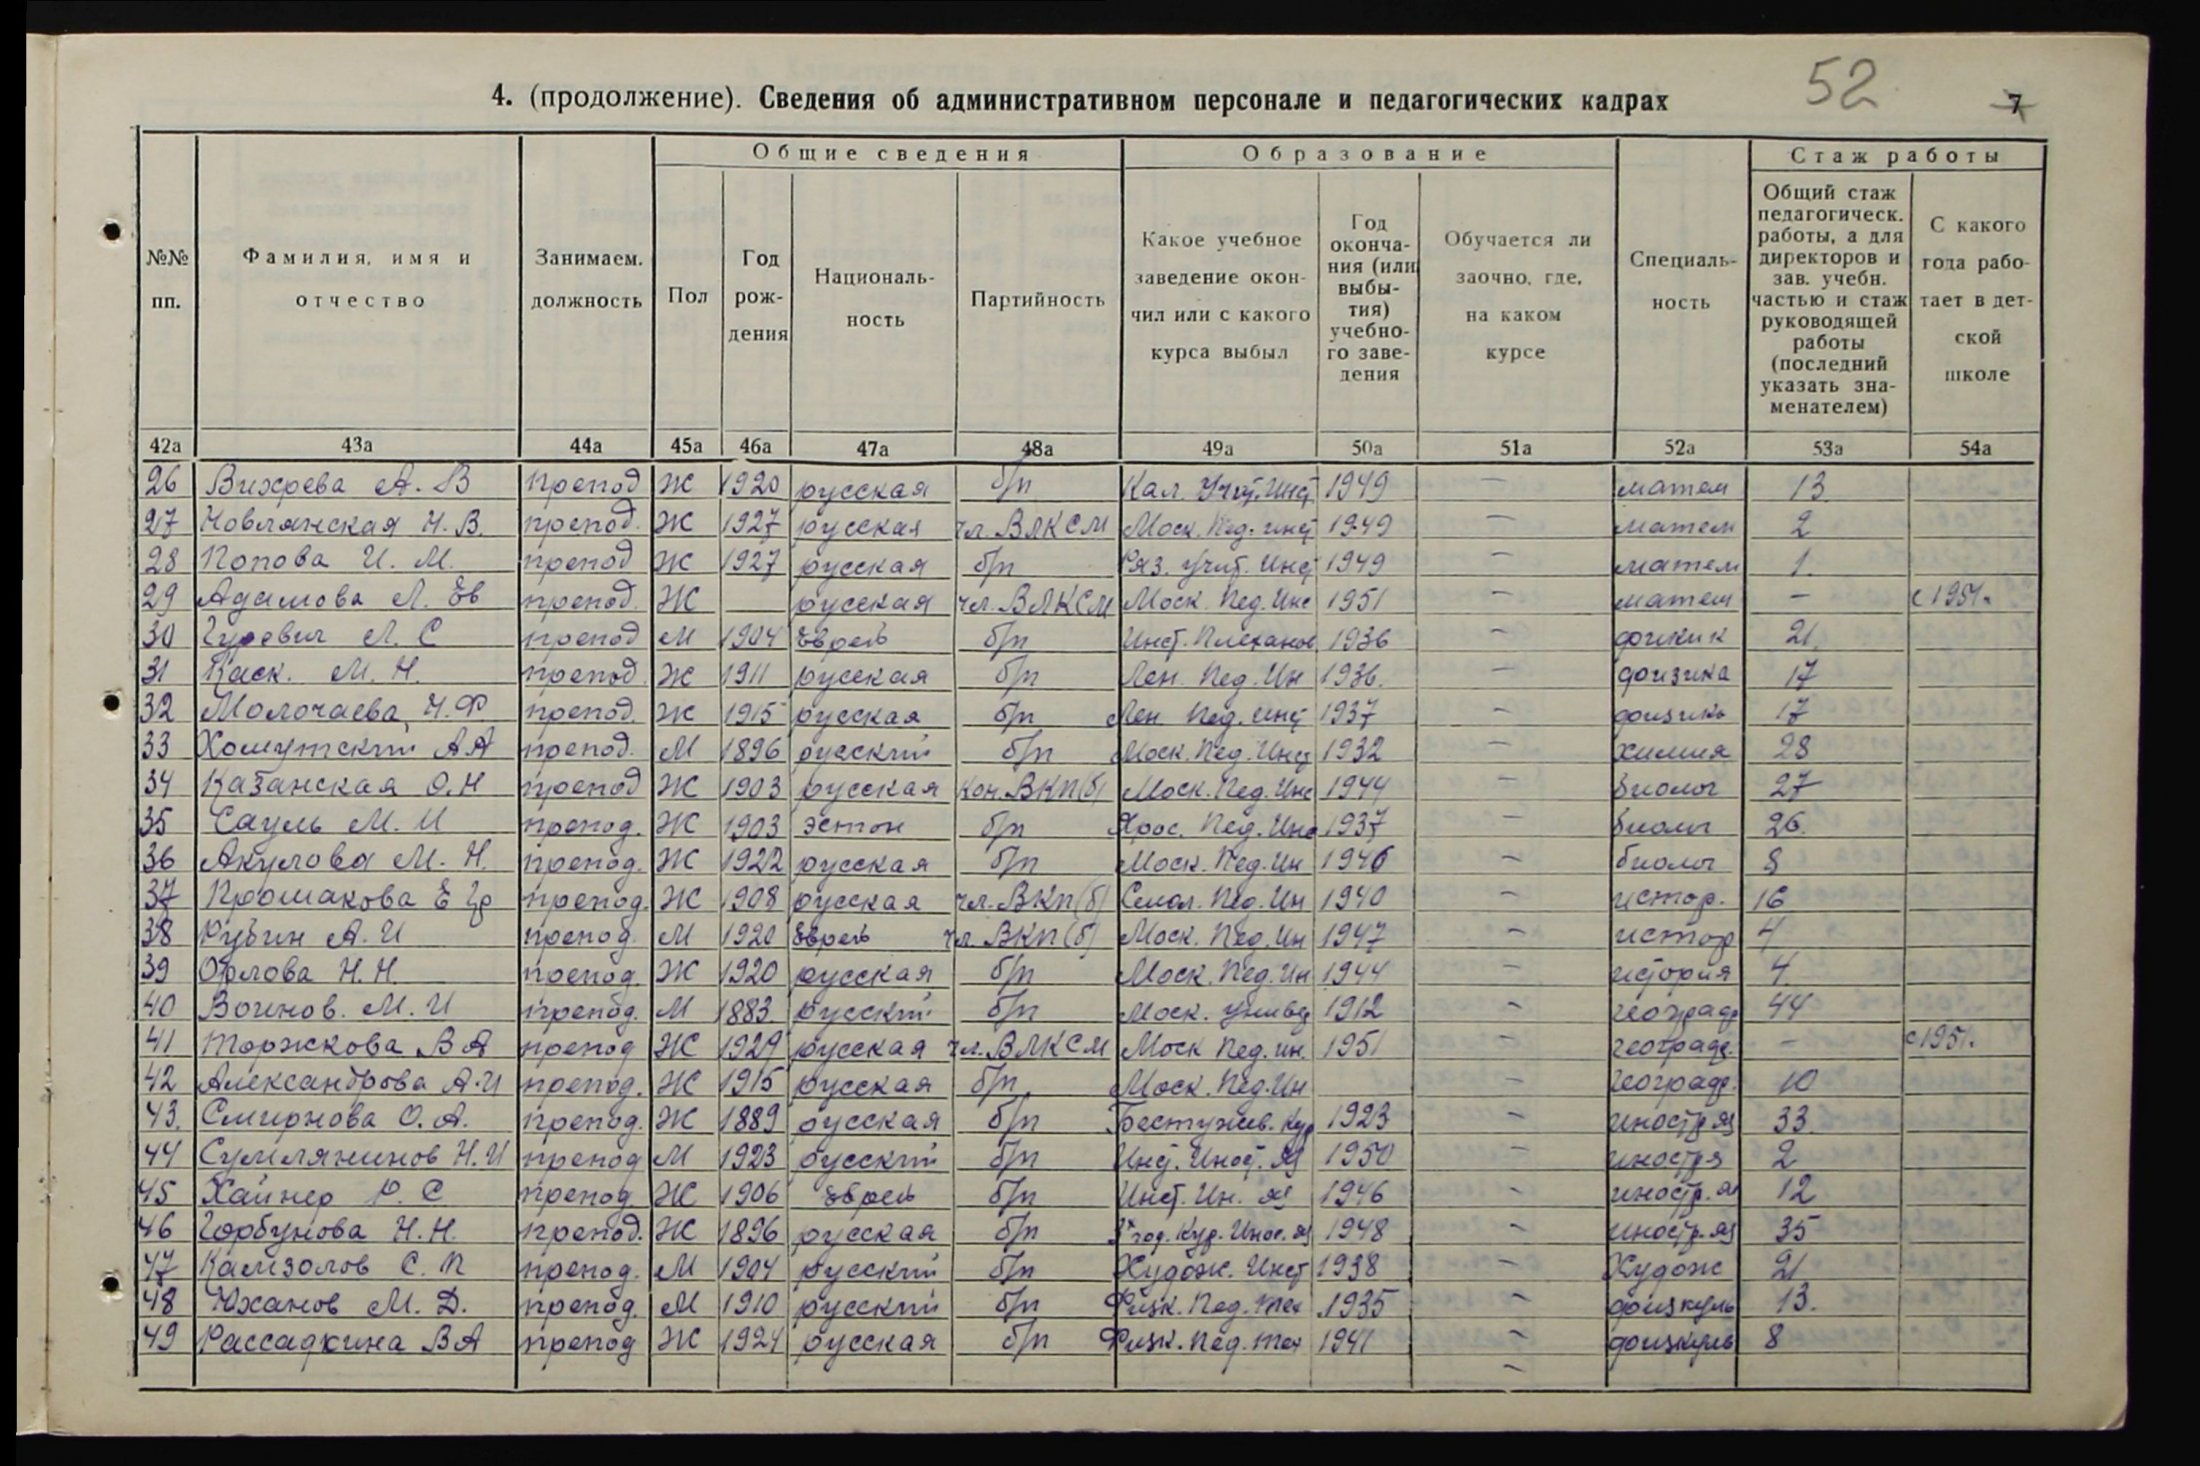 52
4. (продолжение). Сведения об административном персонале и педагогических кадрах
7
№№ пп. Фамилия, имя и отчество Занимаем. должность Общие сведения Пол Год рождения Националь-ность Партийность Образование Какое учебное заведение окон-чил или с какого курса выбыл Год оконча-ния (или выбы-тия) учебно-го заве-дения Обучается ли заочно, где, на каком курсе Специаль-ность Стаж работы Общий стаж педагогическ. работы, а для директоров и зав. учебн. частью и стаж руководящей работы (последний указать зна-менателем) С какого года рабо-тает в дет-ской школе
42а 43а 44а 45а 46а 47а 48а 49а 50а 51а 52а 53а 54а
26 Вихрева А. В препод Ж 1920 русская б/п Кал. Учит. Инст. 1949 — матем 13
27 Новлянская Н. В. препод. Ж 1927 русская чл. ВЛКСМ Моск. Пед. инст 1949 — матем 2
28 Попова И. М. препод Ж 1927 русская б/п Ряз. Учит. Инст 1949 — матем 1.
29 Адамова Л. Ев препод. Ж — русская чл. ВЛКСМ Моск. Пед. Инс 1951 — матем — с 1951.
30 Гуревич Л. С препод М 1904 Еврей б/п Инст. Плеханов 1936 — физик 21.
31 Каск. М. Н. препод. Ж 1911 русская б/п Лен. Пед. Ин 1936. — физика 17
32 Молочаева Н. Ф. препод. Ж 1915 русская б/п Лен. Пед. инст 1937 — физика 17
33 Хомутский А А препод. М 1896 русский б/п Моск. Пед. Инст 1932 — химия 28
34 Казанская О. Н препод Ж 1903 русская кан. ВКП(б) Моск. Пед. Инс 1944 — биолог 27
35 Сауль М. И препод. Ж 1903 эстон б/п Ярос. Пед. Инс 1937 — биолог 26.
36 Акулова М. Н. препод. Ж 1922 русская б/п Моск. Пед. Ин 1946 — биолог 8
37 Промакова Е Гр препод. Ж 1908 русская чл. ВКП(б) Смол. Пед. Ин 1940 — истор. 16
38 Рубин А. И препод. М 1920 Еврей чл. ВКП(б) Моск. Пед. Ин 1947 — истор 4
39 Орлова Н. Н. препод. Ж 1920 русская б/п Моск. Пед. Ин 1944 — история 4.
40 Воинов. М. И препод. М 1883 русский б/п Моск. Универ 1912 — географ 44
41 Торжкова В А препод Ж 1929 русская чл. ВЛКСМ Моск Пед. ин. 1951 — географ. — с 1951.
42 Александрова А. И препод. Ж 1915 русская б/п Моск. Пед. Ин — географ. 10
43. Смирнова О. А. препод. Ж 1889 русская б/п Бестужев. Кур 1923 — иностр яз 33
44 Сумлянинов Н. И препод М 1923 русский б/п Инст. Иност. Яз 1950 — иностр яз 2
45 Хайнер Р. С препод. Ж 1906 Еврей б/п Инст. Ин. яз 1946 — иностр. яз 12
46 Горбунова Н. Н. препод. Ж 1896 русская б/п 3х год. Кур. Инос. яз 1948 — иностр. яз 35
47 Камзолов С. П препод. М 1904 русский б/п Худож. Инст 1938 — Худож 21
48 Юханов М. Д. препод. М 1910 русский б/п Физк. Пед. тех 1935 — физкуль 13.
49 Рассадкина В А препод Ж 1924 русская б/п Физк. Пед. тех 1941 — физкуль 8
—